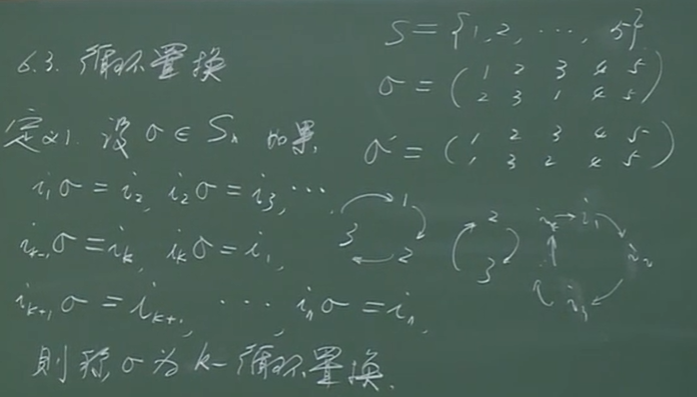 6.3. 循环置换
定义1. 设 σ ∈ Sₙ 如果
i₁σ = i₂, i₂σ = i₃, ⋯
iₖ₋₁σ = iₖ, iₖσ = i₁,
iₖ₊₁σ = iₖ₊₁, ⋯, iₙσ = iₙ,
则称 σ 为 k-循环置换.
S = {1, 2, ⋯, 5}
σ = ( 1 2 3 4 5
2 3 1 4 5 )
σ = ( 1 2 3 4 5
1 3 2 4 5 )
1
3 2
2
3
iₖ → i₁
i₂
i₃